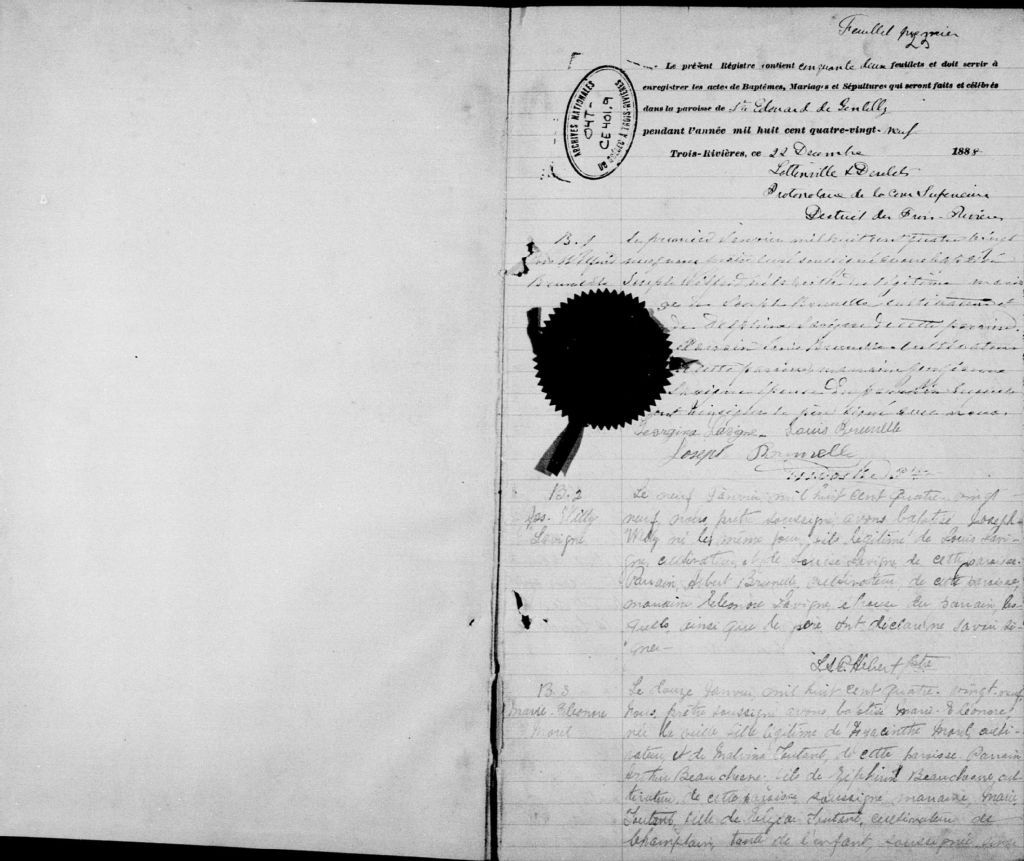 Feuillet premier
Le présent Régistre contient cinquante deux feuillets et doit servir à
enregistrer les actes de Baptêmes, Mariages et Sépultures qui seront faits et célébrés
dans la paroisse de St Edouard de Gentilly
pendant l'année mil huit cent quatre-vingt-neuf
Trois-Rivières, ce 22 Decembre 1888
ARCHIVES NATIONALES
04T-
CE401.9
Protonotaire de la Cour Superieure
District des Trois-Rivieres
B. 1
Le premier Janvier mil huit cent quatre vingt
neuf nous pretre soussigné avons baptisé
Brunelle Joseph Wilfrid fils légitime
Joseph Brunelle cultivateur et
de Delphine Lavigne de cette paroisse.
Parrain Louis Brunelle cultivateur
de cette paroisse, marraine Georgianna
Lavigne épouse du parrain lesquels
ont ainsi que le père signé avec nous.
Georgina Lavigne Louis Brunelle
Joseph Brunelle
B. 2
Jos. Willy
Lavigne
Le neuf Janvier, mil huit cent quatre vingt
neuf, nous, prêtre soussigné, avons batisé Joseph
Willy né le même jour, fils légitime de Louis Lavi-
gne, cultivateur, et de Louise Lavigne de cette paroisse.
Parrain, Albert Brunelle, cultivateur, de cette paroisse,
marraine Eléonore Lavigne, épouse du parrain, les-
quels, ainsi que le père, ont déclaré ne savoir si-
gner-
Ls C. Hébert ptre
B. 3
Marie-Eléonore
Morel
Le douze Janvier mil huit cent quatre-vingt-neuf,
Nous, prêtre soussigné avons batisé Marie-Eléonore,
née la veille, fille légitime de Hyacinthe Morel, culti-
vateur, et de Malvina Toutant, de cette paroisse. Parrain
Arthur Beauchesne fils de Zéphirin Beauchesne, cul-
tivateur, de cette paroisse soussigné marraine, Marie
Toutant, fille de Toutant, cultivateur de
Champlain, tante de l'enfant, soussignée,